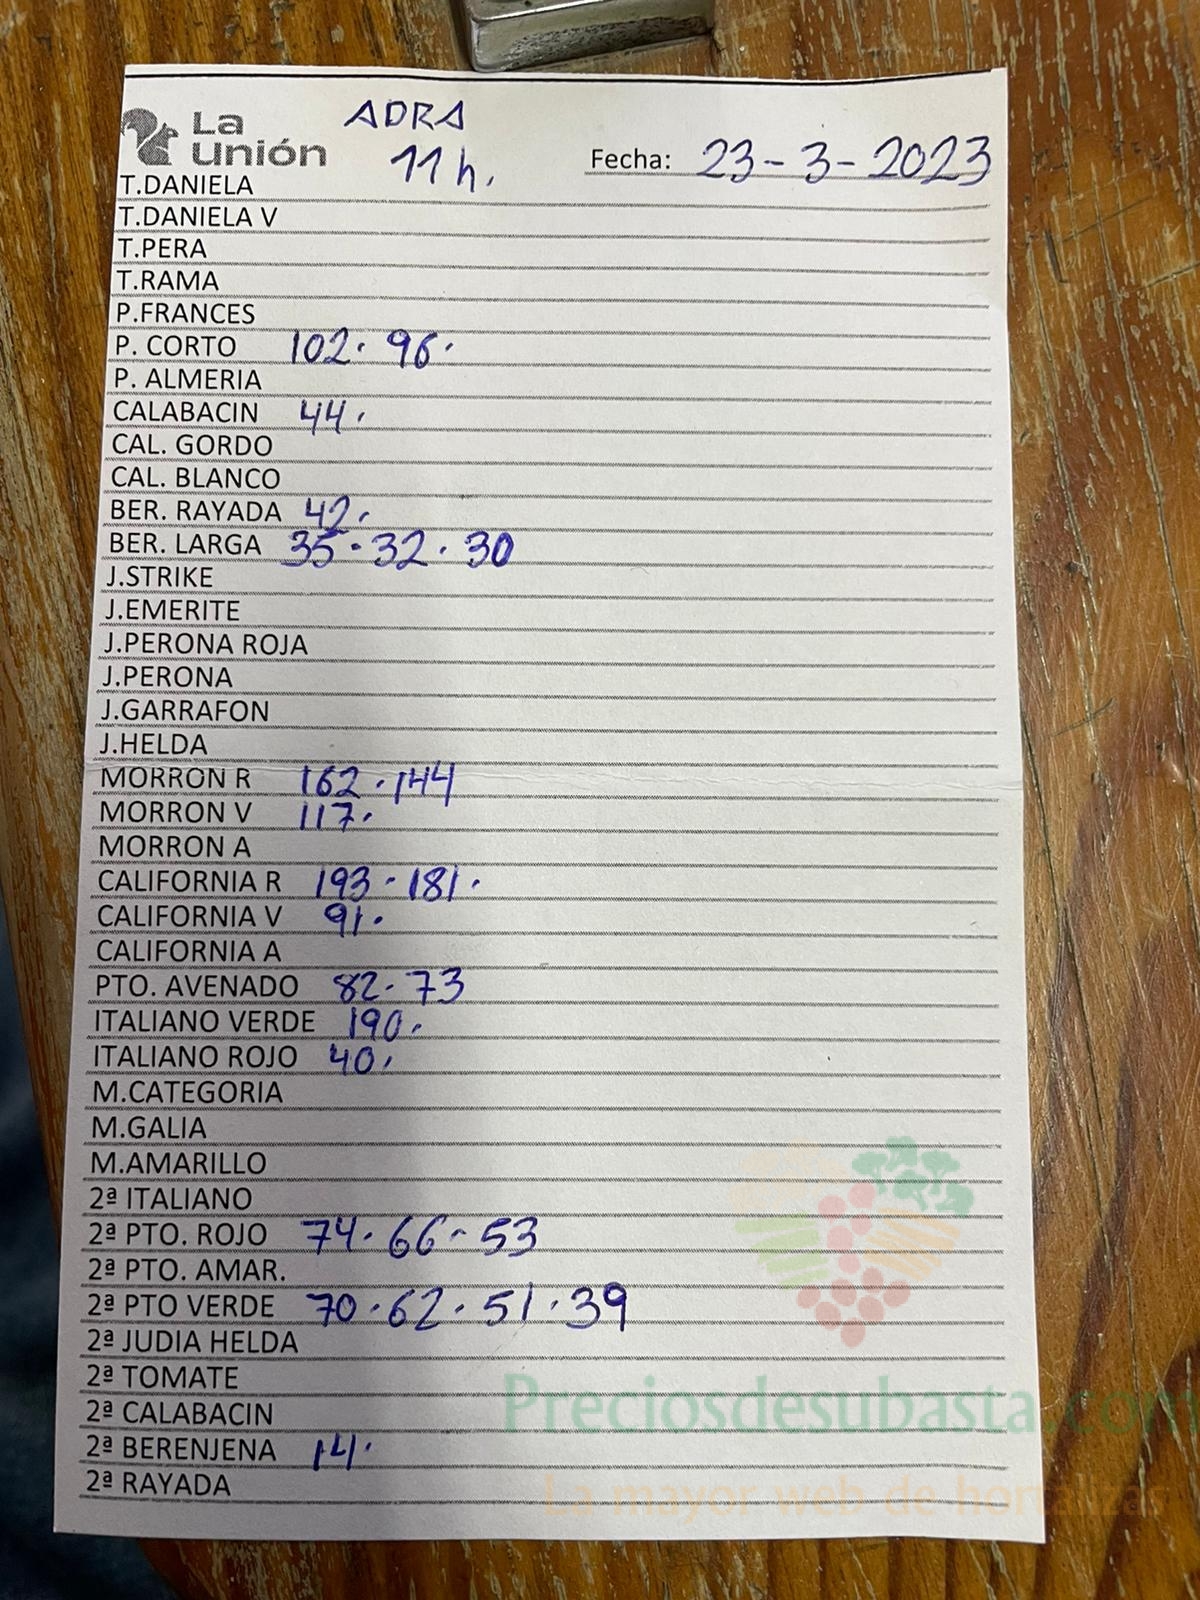 La unión ADRA
11 h. Fecha: 23-3-2023
T.DANIELA
T.DANIELA V
T.PERA
T.RAMA
P.FRANCES
P. CORTO 102. 96.
P. ALMERIA
CALABACIN 44.
CAL. GORDO
CAL. BLANCO
BER. RAYADA 42.
BER. LARGA 35.32.30
J.STRIKE
J.EMERITE
J.PERONA ROJA
J.PERONA
J.GARRAFON
J.HELDA
MORRON R 162.144
MORRON V 117.
MORRON A
CALIFORNIA R 193.181.
CALIFORNIA V 91.
CALIFORNIA A
PTO. AVENADO 82.73
ITALIANO VERDE 190.
ITALIANO ROJO 40.
M.CATEGORIA
M.GALIA
M.AMARILLO
2ª ITALIANO
2ª PTO. ROJO 74.66-53
2ª PTO. AMAR.
2ª PTO VERDE 70.62.51.39
2ª JUDIA HELDA
2ª TOMATE
Preciosdesubasta.com
2ª CALABACIN
2ª BERENJENA 14.
2ª RAYADA
La mayor web de hortalizas